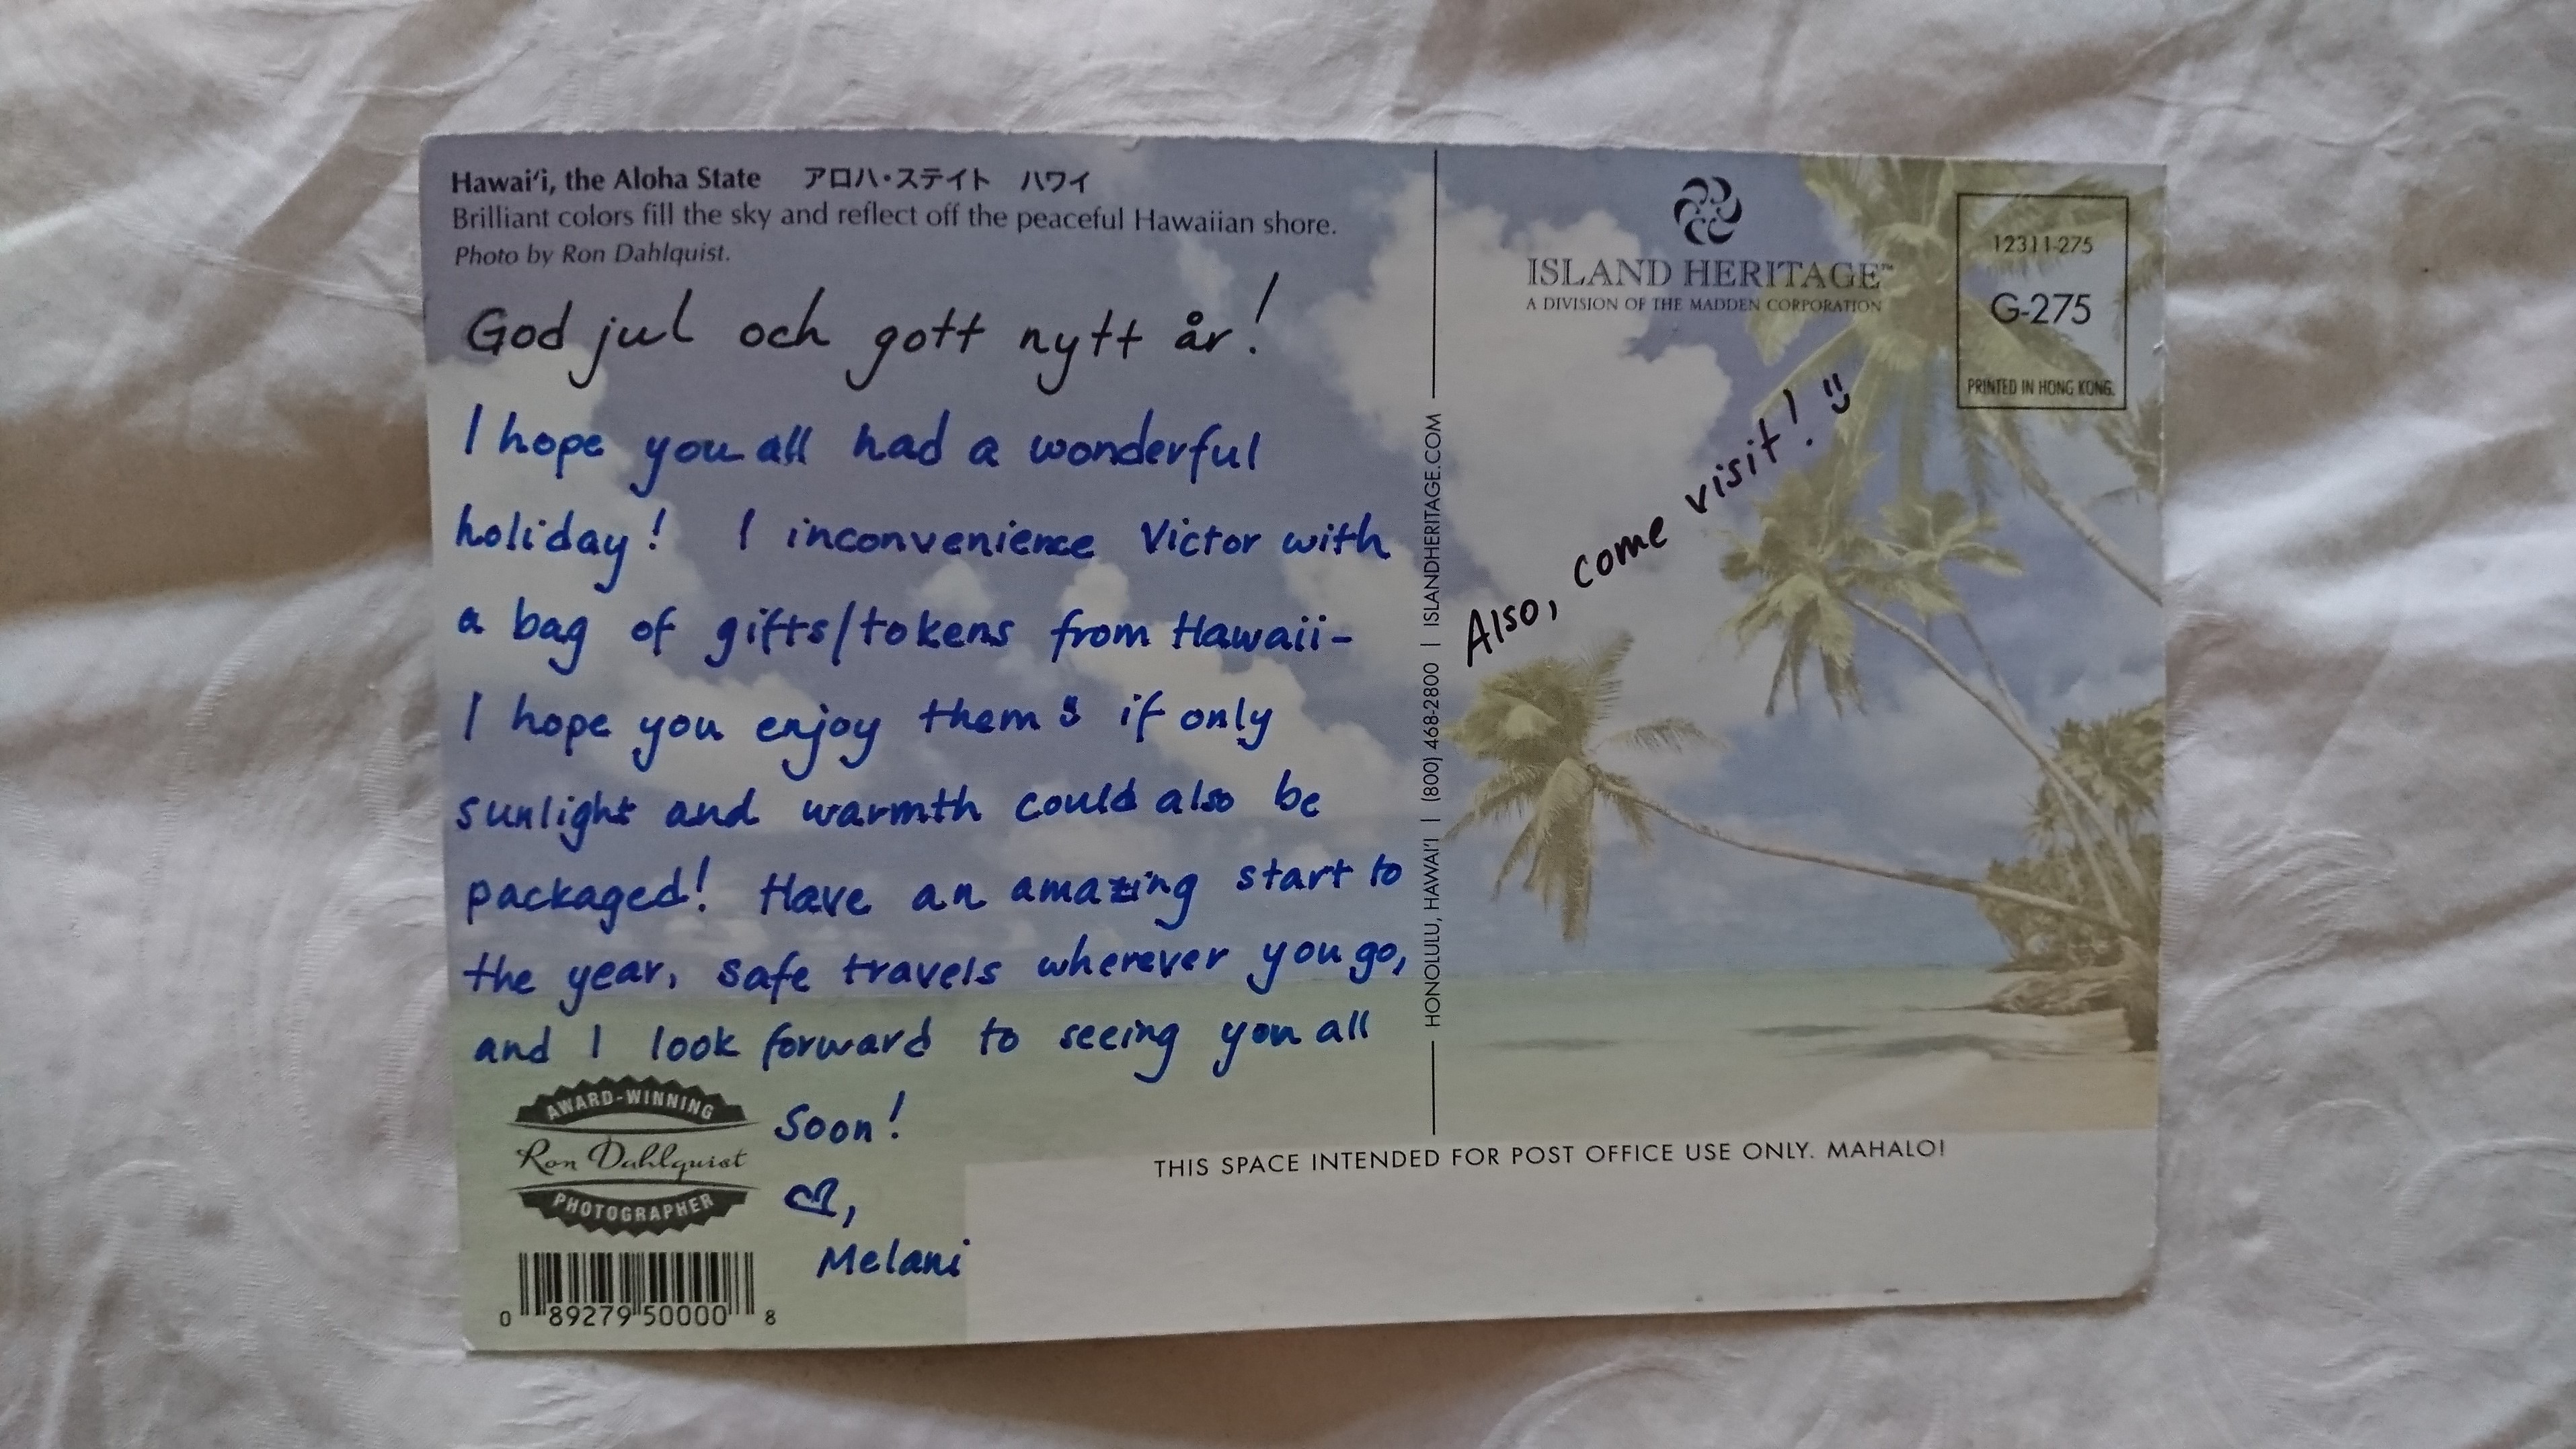 Hawai‘i, the Aloha State アロハ・ステイト ハワイ
Brilliant colors fill the sky and reflect off the peaceful Hawaiian shore.
Photo by Ron Dahlquist.
God jul och gott nytt år!
I hope you all had a wonderful
holiday! I inconvenience Victor with
a bag of gifts/tokens from Hawaii-
I hope you enjoy them & if only
sunlight and warmth could also be
packaged! Have an amazing start to
the year, safe travels wherever you go,
and I look forward to seeing you all
soon!
♡,
Melani
AWARD-WINNING
Ron Dahlquist
PHOTOGRAPHER
0 89279 50000 8
HONOLULU, HAWAI‘I | (800) 468-2800 | ISLANDHERITAGE.COM
ISLAND HERITAGE™
A DIVISION OF THE MADDEN CORPORATION
12311-275
G-275
PRINTED IN HONG KONG.
Also, come visit! :)
THIS SPACE INTENDED FOR POST OFFICE USE ONLY. MAHALO!